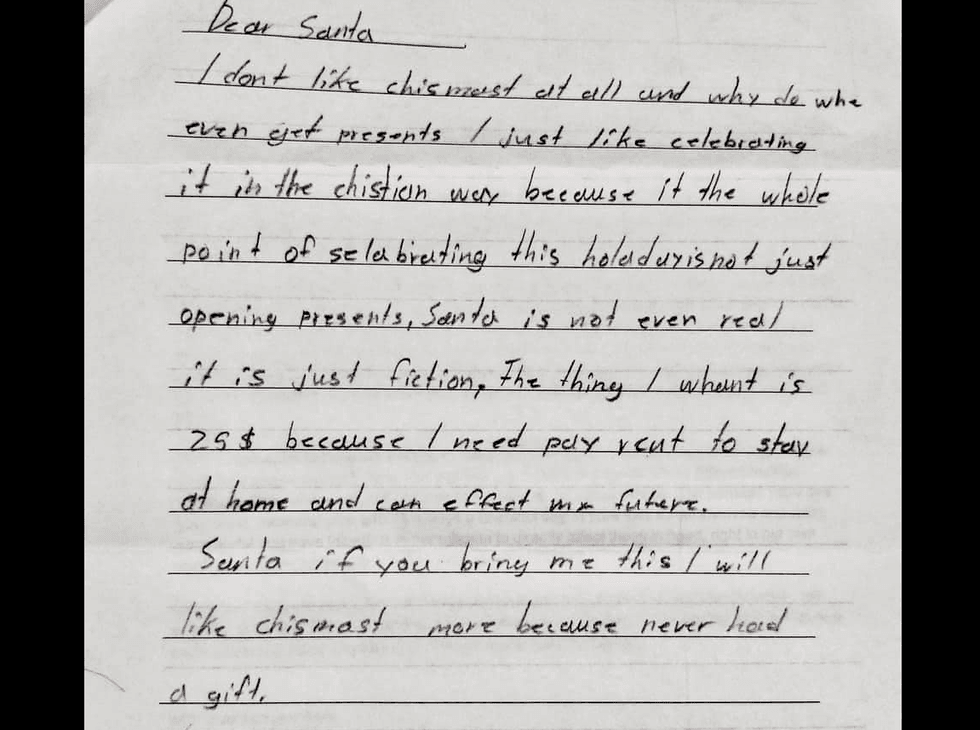 Dear Santa
I dont like chismast at all and why do whe
even get presents I just like celebrating
it in the chistian way because it the whole
point of selabrating this holadayisnot just
opening presents, Santa is not even real
it is just fiction, The thing I whant is
25 $ because I need pay rent to stay
at home and can effect my future.
Santa if you bring me this I will
like chismast more because never had
a gift.